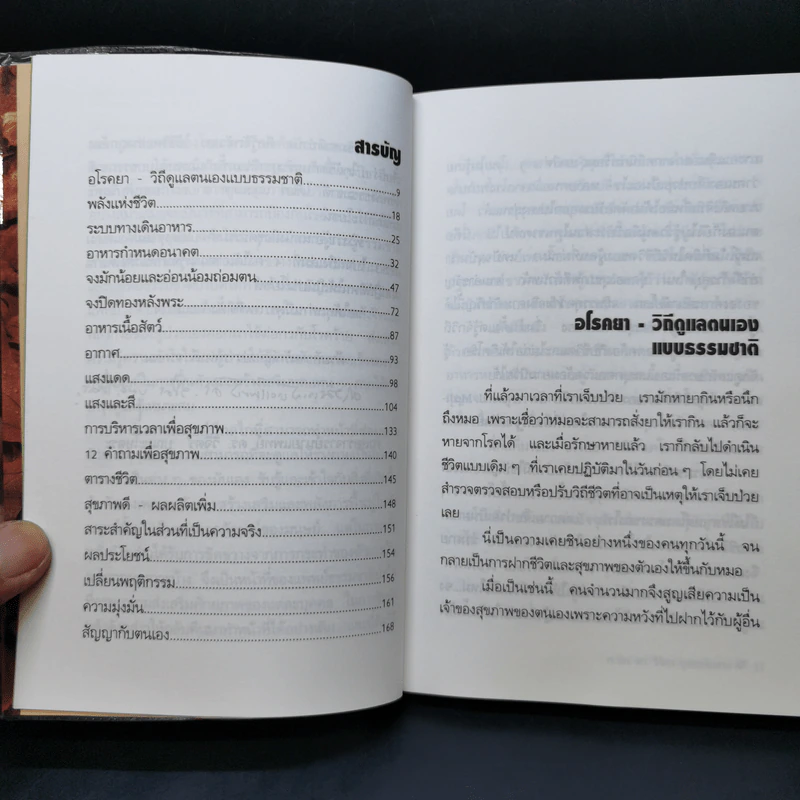 สารบัญ
อโรคยา - วิถีดูแลตนเองแบบธรรมชาติ........................9
พลังแห่งชีวิต........................18
ระบบทางเดินอาหาร........................25
อาหารกำหนดอนาคต........................32
จงมักน้อยและอ่อนน้อมถ่อมตน........................47
จงปิดทองหลังพระ........................72
อาหารเนื้อสัตว์........................87
อากาศ........................93
แสงแดด........................98
แสงและสี........................104
การบริหารเวลาเพื่อสุขภาพ........................133
12 คำถามเพื่อสุขภาพ........................140
ตารางชีวิต........................145
สุขภาพดี - ผลผลิตเพิ่ม........................148
สาระสำคัญในส่วนที่เป็นความจริง........................151
ผลประโยชน์........................154
เปลี่ยนพฤติกรรม........................156
ความมุ่งมั่น........................161
สัญญากับตนเอง........................168
อโรคยา - วิถีดูแลตนเอง
แบบธรรมชาติ
ที่แล้วมาเวลาที่เราเจ็บป่วย เรามักหายากินหรือนึก
ถึงหมอ เพราะเชื่อว่าหมอจะสามารถสั่งยาให้เรากิน แล้วก็จะ
หายจากโรคได้ และเมื่อรักษาหายแล้ว เราก็กลับไปดำเนิน
ชีวิตแบบเดิม ๆ ที่เราเคยปฏิบัติมาในวันก่อน ๆ โดยไม่เคย
สำรวจตรวจสอบหรือปรับวิถีชีวิตที่อาจเป็นเหตุให้เราเจ็บป่วย
เลย
นี่เป็นความเคยชินอย่างหนึ่งของคนทุกวันนี้ จน
กลายเป็นการฝากชีวิตและสุขภาพของตัวเองให้ขึ้นกับหมอ
เมื่อเป็นเช่นนี้ คนจำนวนมากจึงสูญเสียความเป็น
เจ้าของสุขภาพของตนเองเพราะความหวังที่ไปฝากไว้กับผู้อื่น